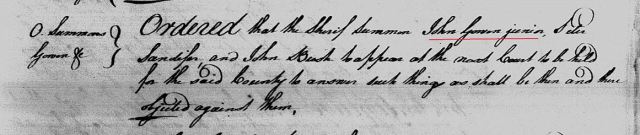 O. Summons
Gowen &
Ordered that the Sherif summon John Gowen junior, Peter
Sandifer, and John Bush to appear at the next Court to be held
for the said County to answer such things as shall be then and there
objected against them.